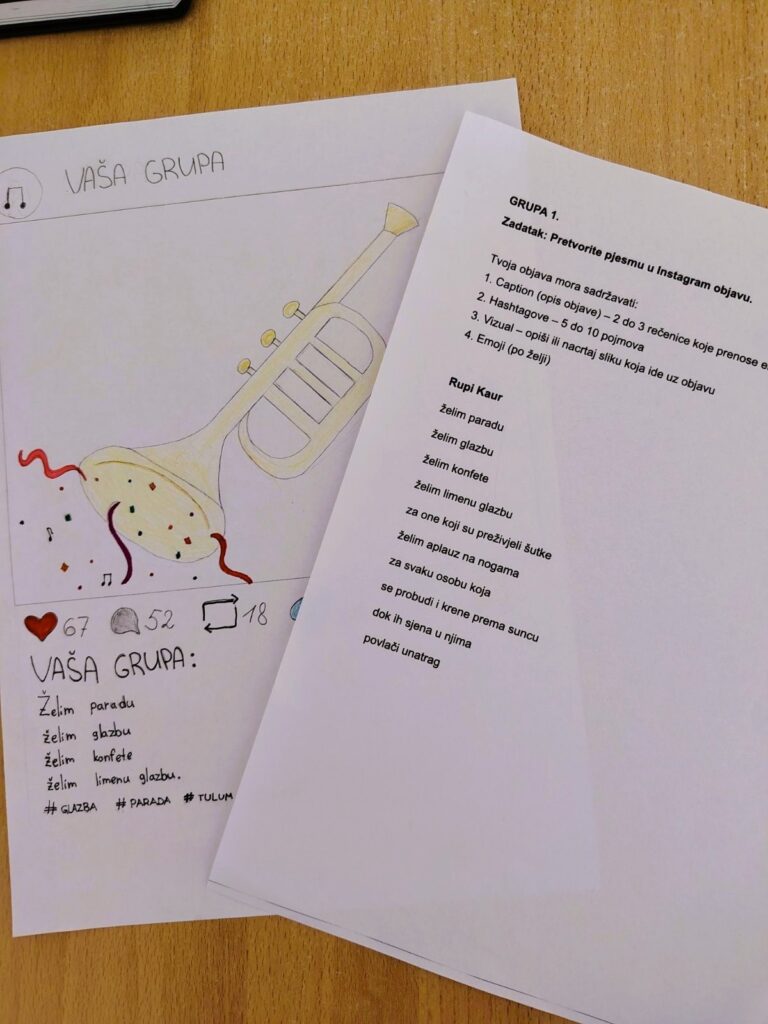 VAŠA GRUPA
67 52 18
VAŠA GRUPA:
Želim paradu
želim glazbu
želim konfete
želim limenu glazbu.
#GLAZBA #PARADA #TULUM
GRUPA 1.
Zadatak: Pretvorite pjesmu u Instagram objavu.
Tvoja objava mora sadržavati:
1. Caption (opis objave) – 2 do 3 rečenice koje prenose
2. Hashtagove – 5 do 10 pojmova
3. Vizual – opiši ili nacrtaj sliku koja ide uz objavu
4. Emoji (po želji)
Rupi Kaur
želim paradu
želim glazbu
želim konfete
želim limenu glazbu
za one koji su preživjeli šutke
želim aplauz na nogama
za svaku osobu koja
se probudi i krene prema suncu
dok ih sjena u njima
povlači unatrag